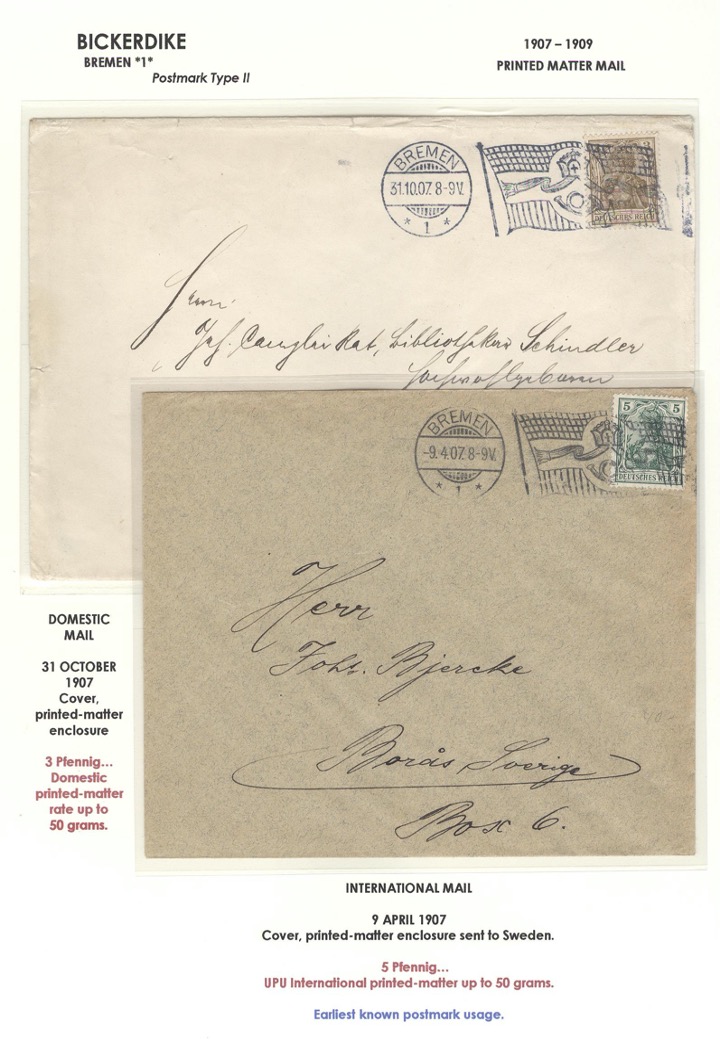 BICKERDIKE
BREMEN *1*
Postmark Type II
1907 – 1909
PRINTED MATTER MAIL
BREMEN
31.10.07. 8-9V.
* 1 *
3
DEUTSCHES REICH
Herrn
Geh. Canzlei Rat, Bibliothekar Schindler
BREMEN
-9.4.07. 8-9V.
* 1 *
5 5
DEUTSCHES REICH
Herr
Joh. Bjercke
Borås Sverige
Box 6.
DOMESTIC
MAIL
31 OCTOBER
1907
Cover,
printed-matter
enclosure
3 Pfennig...
Domestic
printed-matter
rate up to
50 grams.
INTERNATIONAL MAIL
9 APRIL 1907
Cover, printed-matter enclosure sent to Sweden.
5 Pfennig...
UPU International printed-matter up to 50 grams.
Earliest known postmark usage.